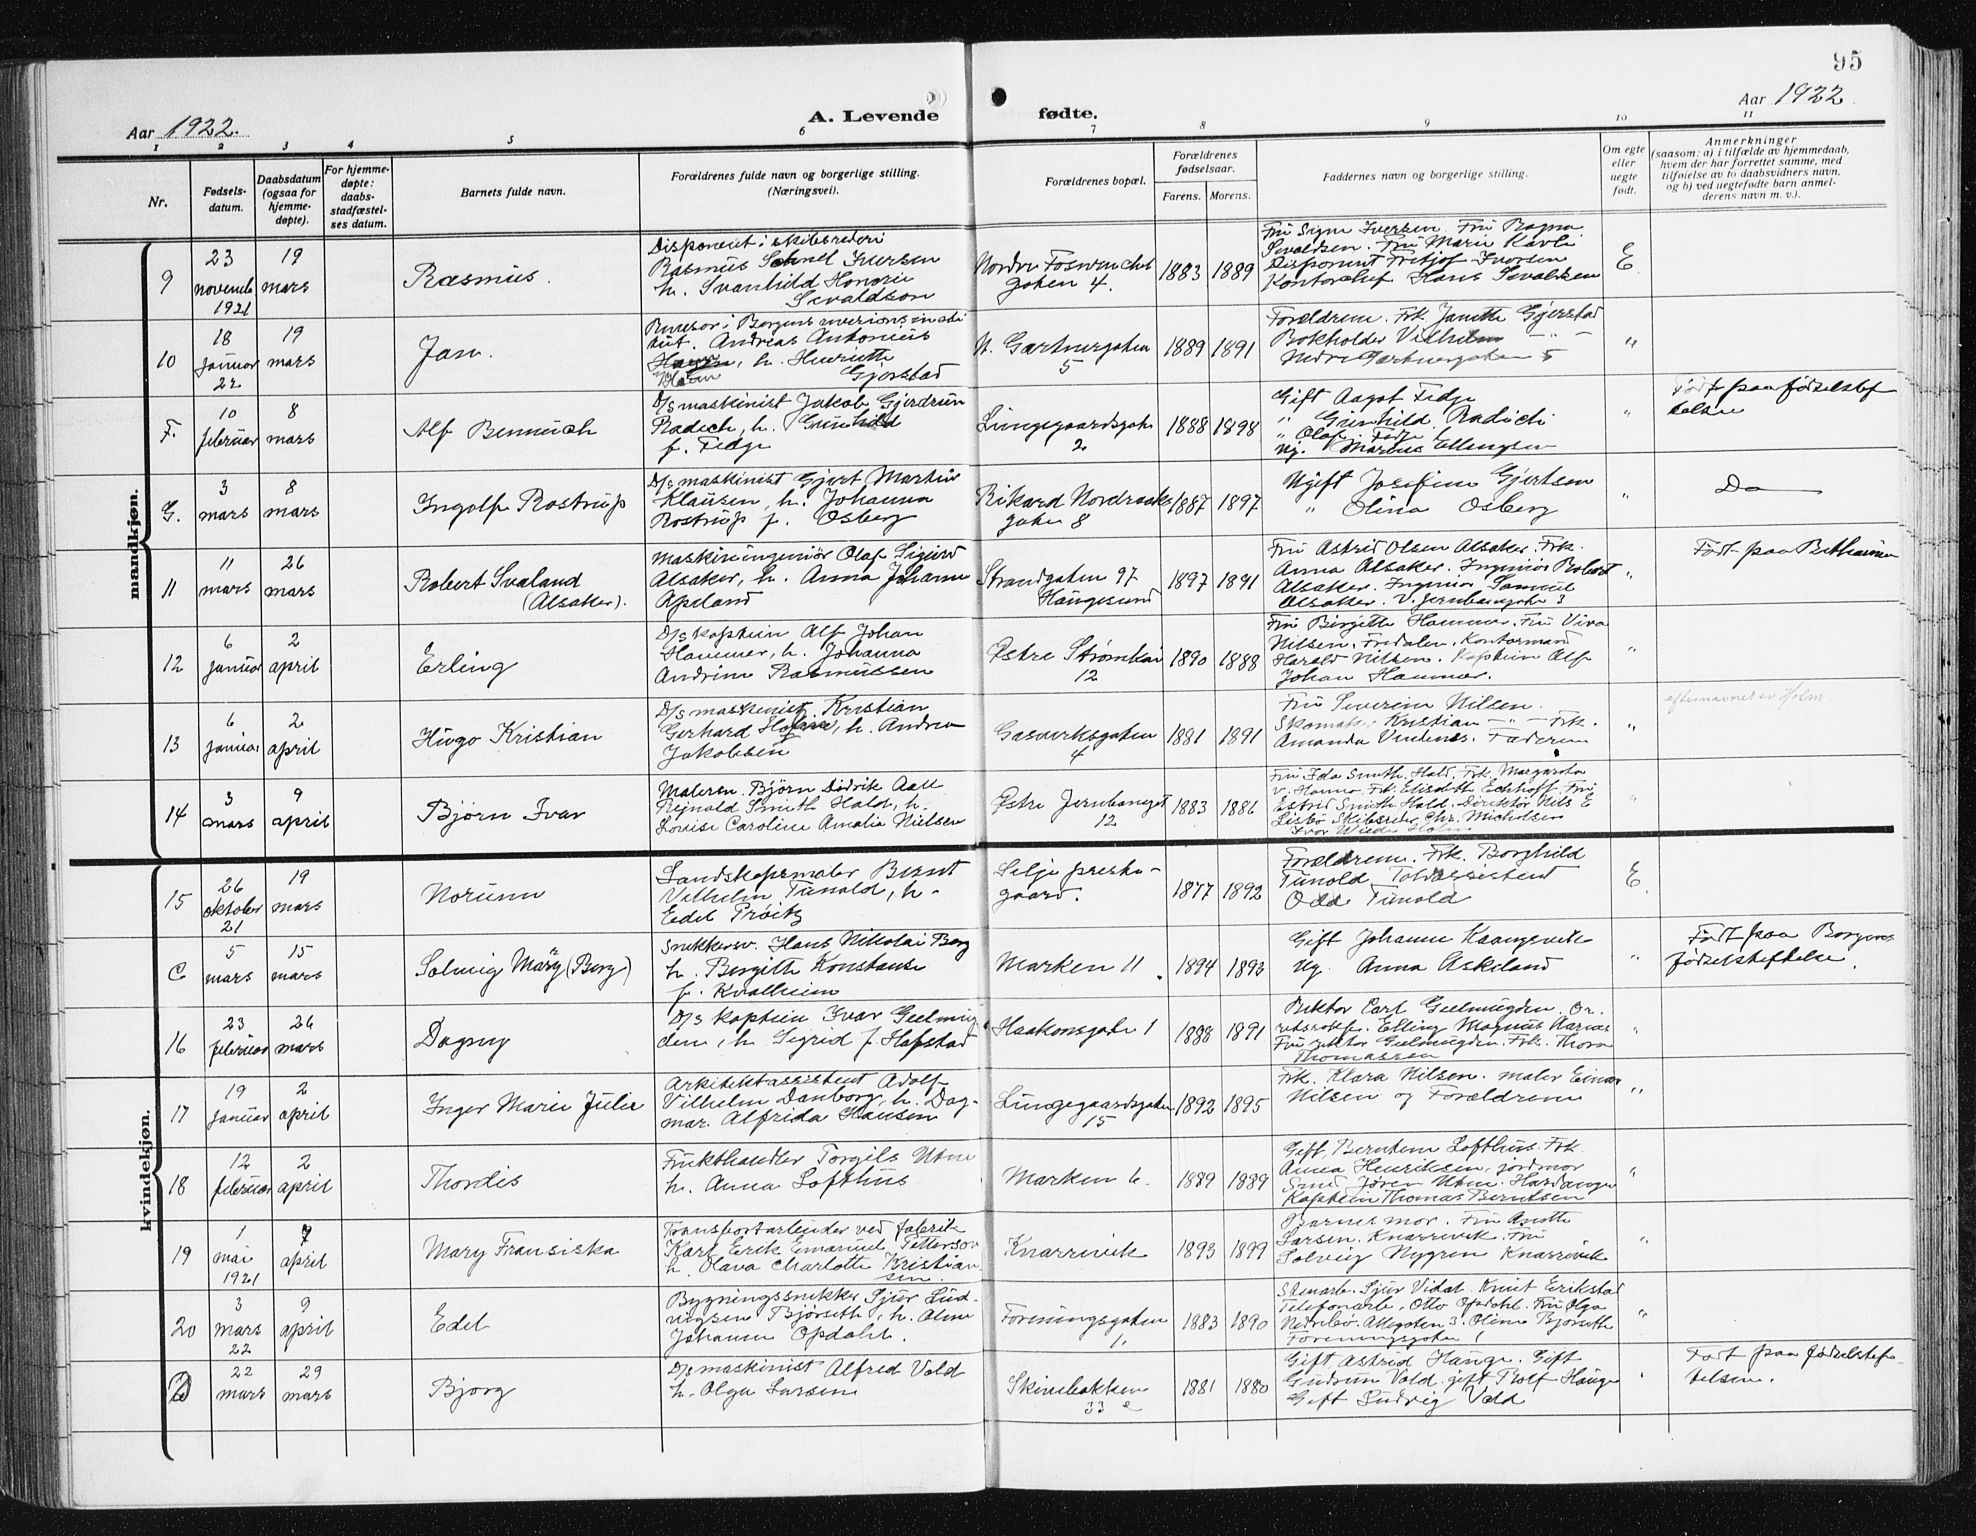 95
Aar 1922.
A. Levende
fødte.
Aar 1922.
1 2 3 4 5 6 7 8 9 10 11
Nr.
Fødsels-
datum.
Daabsdatum
(ogsaa for
hjemme-
døpte).
For hjemme-
døpte:
daabs-
stadfæstel-
ses datum.
Barnets fulde navn.
Forældrenes fulde navn og borgerlige stilling.
(Næringsvei).
Forældrenes bopæl.
Forældrenes
fødselsaar.
Farens. Morens.
Faddernes navn og borgerlige stilling.
Om egte
eller
uegte
født.
Anmerkninger
(saasom: a) i tilfælde av hjemmedaab,
hvem der har forrettet samme, med
tilføielse av to daabsvidners navn,
og b) ved uegtefødte barn anmel-
derens navn m. v.).
mandkjøn.
9
23
novemb
1921
19
mars
Rasmus.
Disponent i skibsrederi
Rasmus Iversen
h. Svanhild Honorie
Sevaldson
Nordre
gaten 4.
1883 1889
Fru Signe Iversen. Fru Ragna
Sevaldsen. Fru Marie Kavli
Disponent Fritjof Iversen
Kontorchef Hans Sevaldsen
E.
10
18
januar
22
19
mars
Jan.
Revisor i Bergens revisionsinsti
tut. Andreas Antonius
h. Henriette
Gjerstad
N. Gartnergaten
5
1889 1891
Forældrene. Frk. Janette Gjerstad
Bokholder Vilhelm — " —
Nedre Gartnergaten 5
"
F.
10
februar
8
mars
Alf Bennich
D/s maskinist Jakob Gjerdrum
Radich, h. Gunhild
f. Fedje
Lungegaardsgate
2
1888 1898
Gift Aagot Fedje
" Gunhild Radich
" Olaf Fedje
Ug. Ellengsen
"
Født paa fødselstif
telsen
G.
3
mars
8
mars
Ingolf Rostrup
D/s maskinist Gjert Martin
Klausen, h. Johanna
Rostrup f. Osberg
Rikard Nordraaks
gaten 8
1887 1897
Ugift Josefine Gjertsen
" Olina Osberg
"
Do
11
11
mars
26
mars
Robert Svaland
(Alsaker).
Maskiningeniør Olaf Sigurd
Alsaker, h. Anna Johanne
Apeland
Strandgaten 97
Haugesund
1897 1891
Fru Astrid Olsen Alsaker. Frk.
Anna Alsaker. Ingeniør Robert
Alsaker. Ingeniør Samuel
Alsaker. V. Jernbanegate 3
"
Født paa Bethanien
12
6
januar
2
april
Erling
D/s kaptein Alf Johan
Hammer, h. Johanna
Andrine Rasmussen
Østre Strømkai
12
1890 1888
Fru Birgitte Hammer. Fru Viva
Nilsen, Fredalen. Kontormand
Harald Nilsen. Kaptein Alf
Johan Hammer.
"
13
6
januar
2
april
Hugo Kristian
D/s maskinist, Kristian
Gerhard h. Andrea
Jakobsen
Gasverksgaten
4
1881 1891
Fru Severine Nilsen.
Skomak. Kristian — " — Frk.
Amanda Faderen
"
efternavnet er Holm.
14
3
mars
9
april
Bjørn Ivar
Maleren. Bjørn Didrik Aall
Rejnald Smith Hald, h.
Louise Caroline Amalia Nielsen
Østre Jernbanegt
12
1883 1886
Fru Ida Smith. Hald. Frk. Margareta
v. Hanno Frk. Elisabeth Eckhoff. Fru
Estrid Smith. Hald. Direktør Nils E
Lisbø Skibsreder Chr. Michelsen
Ivar Holm
"
kvindekjøn.
15
26
oktober
21
19
mars
Norunn
Landskapsmaler Bernt
Vilhelm Tunold, h.
Edel Prøitz
Selje preste-
gaard.
1877 1892
Forældrene. Frk. Borghild
Tunold. Toldassistent
Odd Tunold
E.
C
5
mars
15
mars
Solveig Mary (Berg)
Snekkersv. Hans Nikolai Berg
h. Bergitte Konstanse
f. Kvalheim
Marken 11
1894 1893
Gift Johanne Kaangsvik
Ug. Anna Askeland
"
Født paa Bergens
fødselstiftelse.
16
23
februar
26
mars
Dagny
D/s kaptein Ivar Geelmuy
den, h. Sigrid f. Hafstad
Haakonsgate 1
1888 1891
Rektor Carl Geelmuyden. Or.
retssakf. Elling Magnus Aarnes
Fru rektor Geelmuyden. Frk. Thora
Thomassen
"
17
19
januar
2
april
Inger Marie Julie
Arkitektassistent Adolf
Vilhelm Danborg, h. Dag-
mar. Alfrida Hansen
Lungegaardsgaten
15
1892 1895
Frk. Klara Nilsen. maler Einar
Nilsen og Forældrene
"
18
12
februar
2
april
Thordis
Frukthandler Torgils Utne
h. Anna Lofthus
Marken 6.
1889 1889
Gift, Berntine Lofthus. Frk.
Anna Henriksen, jordmor
Smed Jøren Utne. Hardanger
Kaptein Thomas Berntsen
"
19
1
mai
1921
7
april
Mary Fransiska
Transportarbeider ved fabrik
Karl Erik Emanuel Petterson
h. Olava Charlotte Kristian
sen.
Knarrevik
1893 1899
Barnets mor. Fru Anette
Larsen. Knarrevik. Fru
Solveig Nygren Knarrevik
"
20
3
mars
22
9
april
Edel
Bygningssnekker Sjur Lud-
vigsen Bjørseth, h. Oline
Johanne Opdahl.
Foreningsgaten
1,
1883 1890
Stenarb. Sjur Vidal. Knut Erikstad
Telefonarb. Otto Opdahl. Fru Olga
Nedrebø. 3. Oline Bjørseth
Foreningsgaten 1
"
D
22
mars
29
mars
Bjorg
D/s maskinist Alfred Vold
h. Olga Larsen
Skivebakken
33 e
1881 1880
Gift, Astrid Hauge. Gift
Gudrun Vold. gift Rolf Hauge
Gift Ludvig Vold
"
Født paa fødselstif-
telsen.